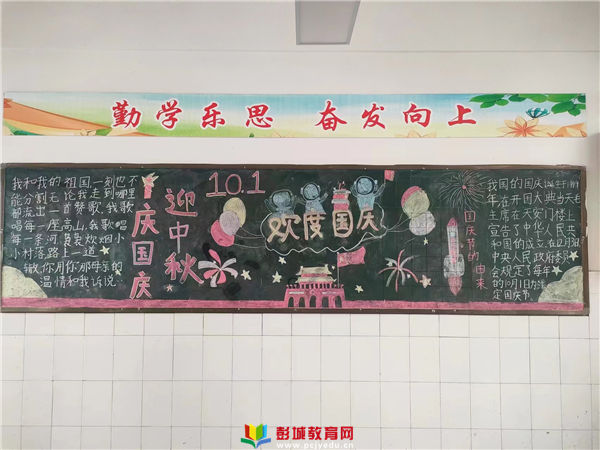 勤学乐思 奋发向上
我和我的祖国一刻也不
能分割无论我走到哪里
都流出一首赞歌我歌
唱每一座高山我歌唱
每一条河
小村落路上一道
你用你那母亲的
温情和我诉说
庆国庆
迎中秋
10.1
欢度国庆
国庆节的由来
我国的国庆
年在开国大典
主席在天安门楼上
宣告了中华人民共
和国的成立
中央人民政府委员
会规定了每年
的10月1日为法
定国庆节。
彭城教育网
www.pcjyedu.cn